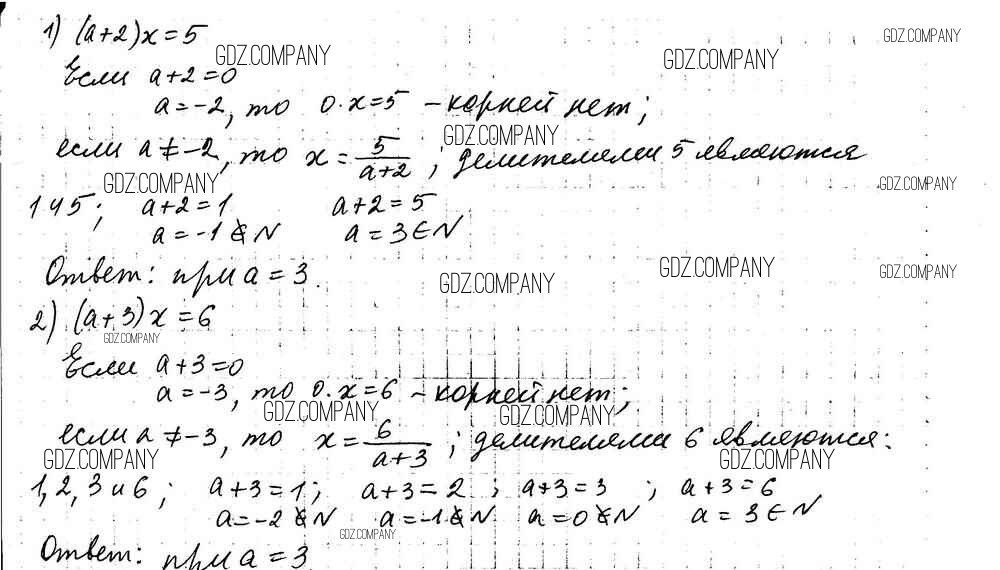 1) (a+2)x=5
GDZ.COMPANY GDZ.COMPANY GDZ.COMPANY
Если a+2=0
a=-2, то 0·x=5 - корней нет;
GDZ.COMPANY
если a≠-2, то x=5/(a+2); делителями 5 являются
GDZ.COMPANY GDZ.COMPANY
1 и 5; a+2=1 a+2=5
a=-1∉N a=3∈N
Ответ: при a=3.
GDZ.COMPANY GDZ.COMPANY GDZ.COMPANY
2) (a+3)x=6
GDZ.COMPANY
Если a+3=0
a=-3, то 0·x=6 - корней нет;
GDZ.COMPANY GDZ.COMPANY
если a≠-3, то x=6/(a+3); делителями 6 являются:
GDZ.COMPANY GDZ.COMPANY
1, 2, 3 и 6; a+3=1; a+3=2; a+3=3; a+3=6
a=-2∉N a=-1∉N a=0∉N a=3∈N
GDZ.COMPANY
Ответ: при a=3